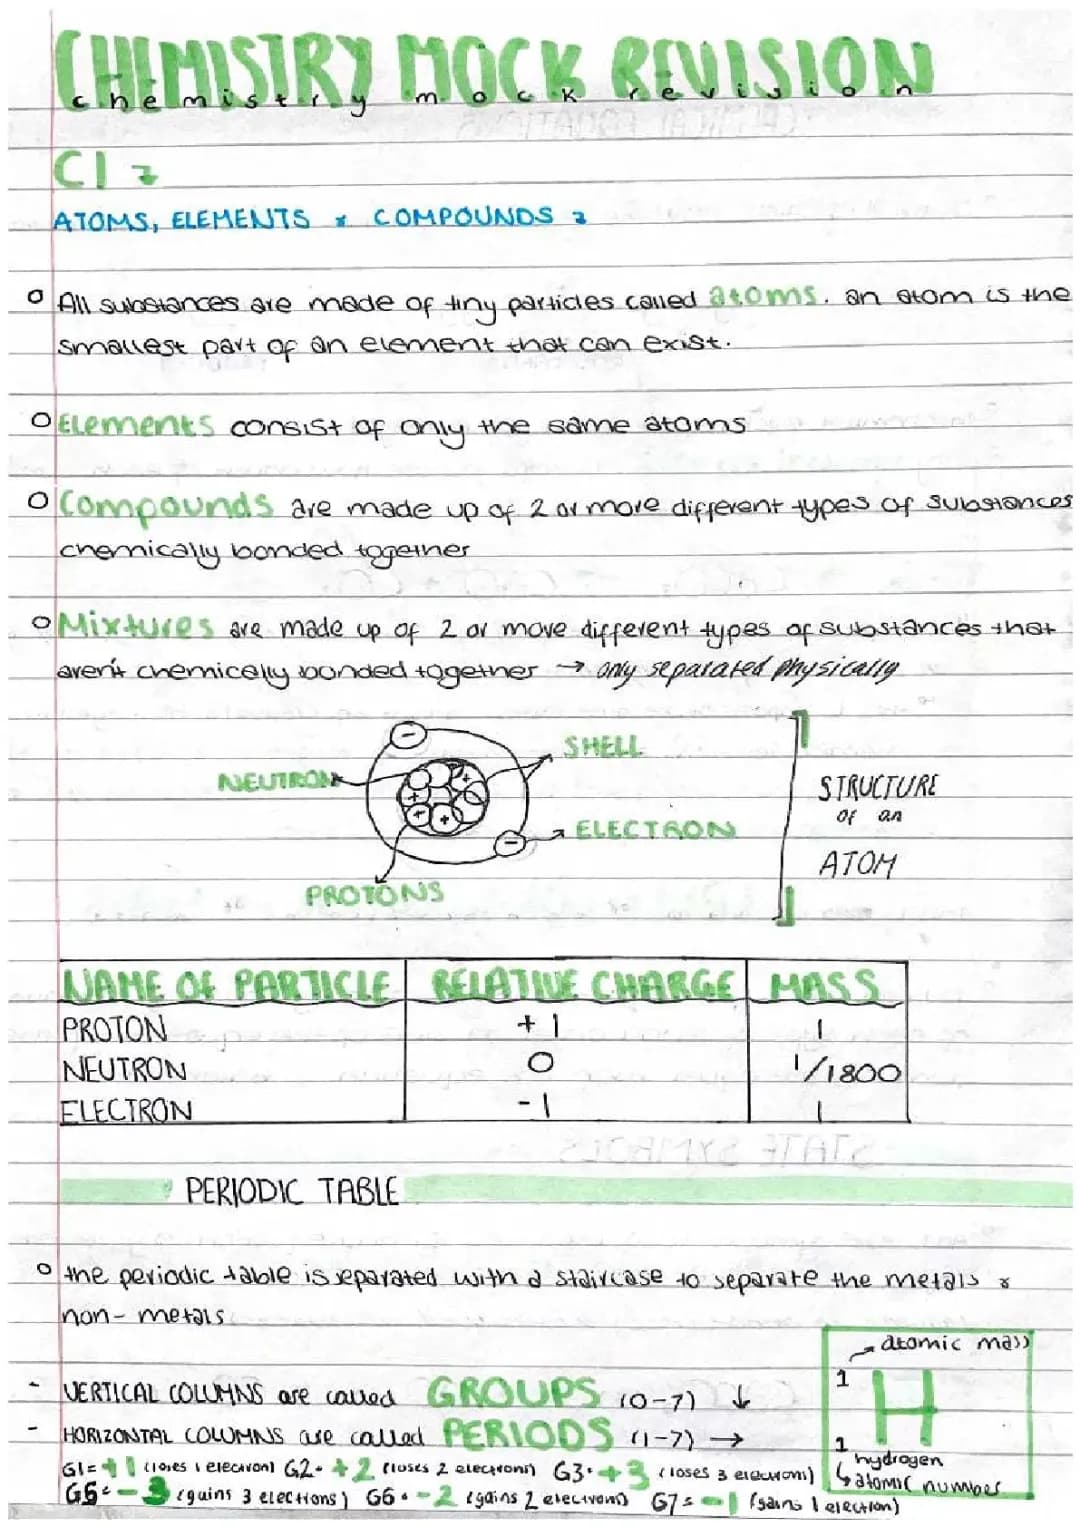 CHEMISTRY MOCK REVISION
chemistry mock revision
C1
ATOMS, ELEMENTS & COMPOUNDS
All substances are made of tiny particles called atoms. an atom is the
smallest part of an element that can exist.
Elements consist of only the same atoms
Compounds are made up of 2 or more different types of substances
chemically bonded together
Mixtures are made up of 2 or more different types of substances that
aren't chemically bonded together → only separated physically
SHELL
NEUTRON
ELECTRON
PROTONS
STRUCTURE
of an
ATOM
NAME OF PARTICLE RELATIVE CHARGE MASS
PROTON +1 1
NEUTRON 0 1/1800
ELECTRON -1 1
PERIODIC TABLE
the periodic table is separated with a staircase to separate the metals &
non-metals
- VERTICAL COLUMNS are called GROUPS (0-7) ↓
- HORIZONTAL COLUMNS are called PERIODS (1-7) →
G1=+1 (loses 1 electron) G2=+2 (loses 2 electrons) G3=+3 (loses 3 electrons)
G5=-3 (gains 3 electrons) G6=-2 (gains 2 electrons) G7=-1 (gains 1 electron)
atomic mass
1
H
1
hydrogen
atomic number